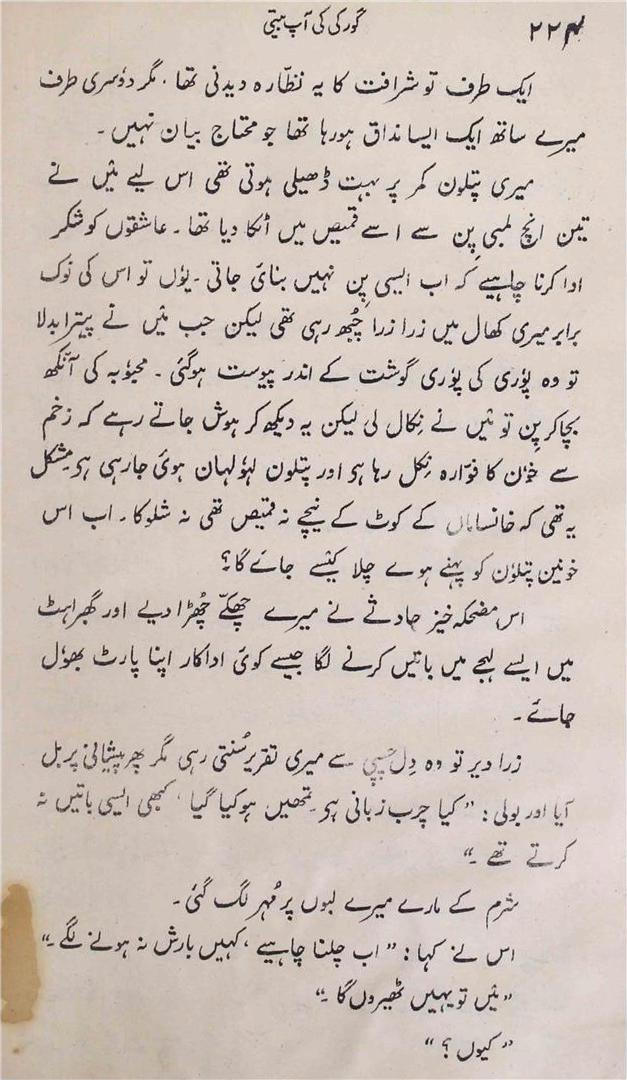 ۲۲۴ گورکی کی آپ بیتی
ایک طرف تو شرافت کا یہ نظّارہ دیدنی تھا، مگر دوٗسری طرف
میرے ساتھ ایک ایسا مذاق ہورہا تھا جو محتاج بیان نہیں۔
میری پتلون کمر پر بہت ڈھیلی ہوتی تھی اس لیے میٔں نے
تین انچ لمبی پِن سے اسے قمیص میں اٹکا دیا تھا۔ عاشقوں کو شکر
ادا کرنا چاہیے کہ اب ایسی پِن نہیں بنائ جاتی۔ یوٗں تو اس کی نوک
برابر میری کھال میں زرا زرا چُبھ رہی تھی لیکن جب میٔں نے پیترا بدلا
تو وہ پوٗری کی پوٗری گوشت کے اندر پیوست ہوگئی۔ محبوٗبہ کی آنکھ
بچاکر پِن تو میٔں نے نِکال لی لیکن یہ دیکھ کر ہوش جاتے رہے کہ زخم
سے خوٗن کا فوّارہ نِکل رہا ہو اور پتلون لہوٗلہان ہوئ جارہی ہو۔ مشکل
یہ تھی کہ خانساماں کے کوٹ کے نیچے نہ قمیص تھی نہ شلوکا۔ اب اس
خونین پتلوٗن کو پہنے ہوے چلا کیٔسے جاۓ گا؟
اس مضحکہ خیز حادثے نے میرے چھکّے چُھڑا دیے اور گھبراہٹ
میں ایسے لہجے میں باتیں کرنے لگا جیسے کوئ اداکار اپنا پارٹ بھوٗل
جاۓ۔
زرا دیر تو وہ دِل چسپی سے میری تقریر سُنتی رہی مگر پھر پیشانی پر بل
آیا اور بولی: ”کیا چرب زبانی ہو۔ تمھیں ہو کیا گیا، کبھی ایسی باتیں نہ
کرتے تھے۔“
شرم کے مارے میرے لبوں پر مُہر لگ گئی۔
اس نے کہا: ”اب چلنا چاہیے، کہیں بارش نہ ہونے لگے۔“
”میٔں تو یہیں ٹھیروں گا۔“
”کیوں؟“